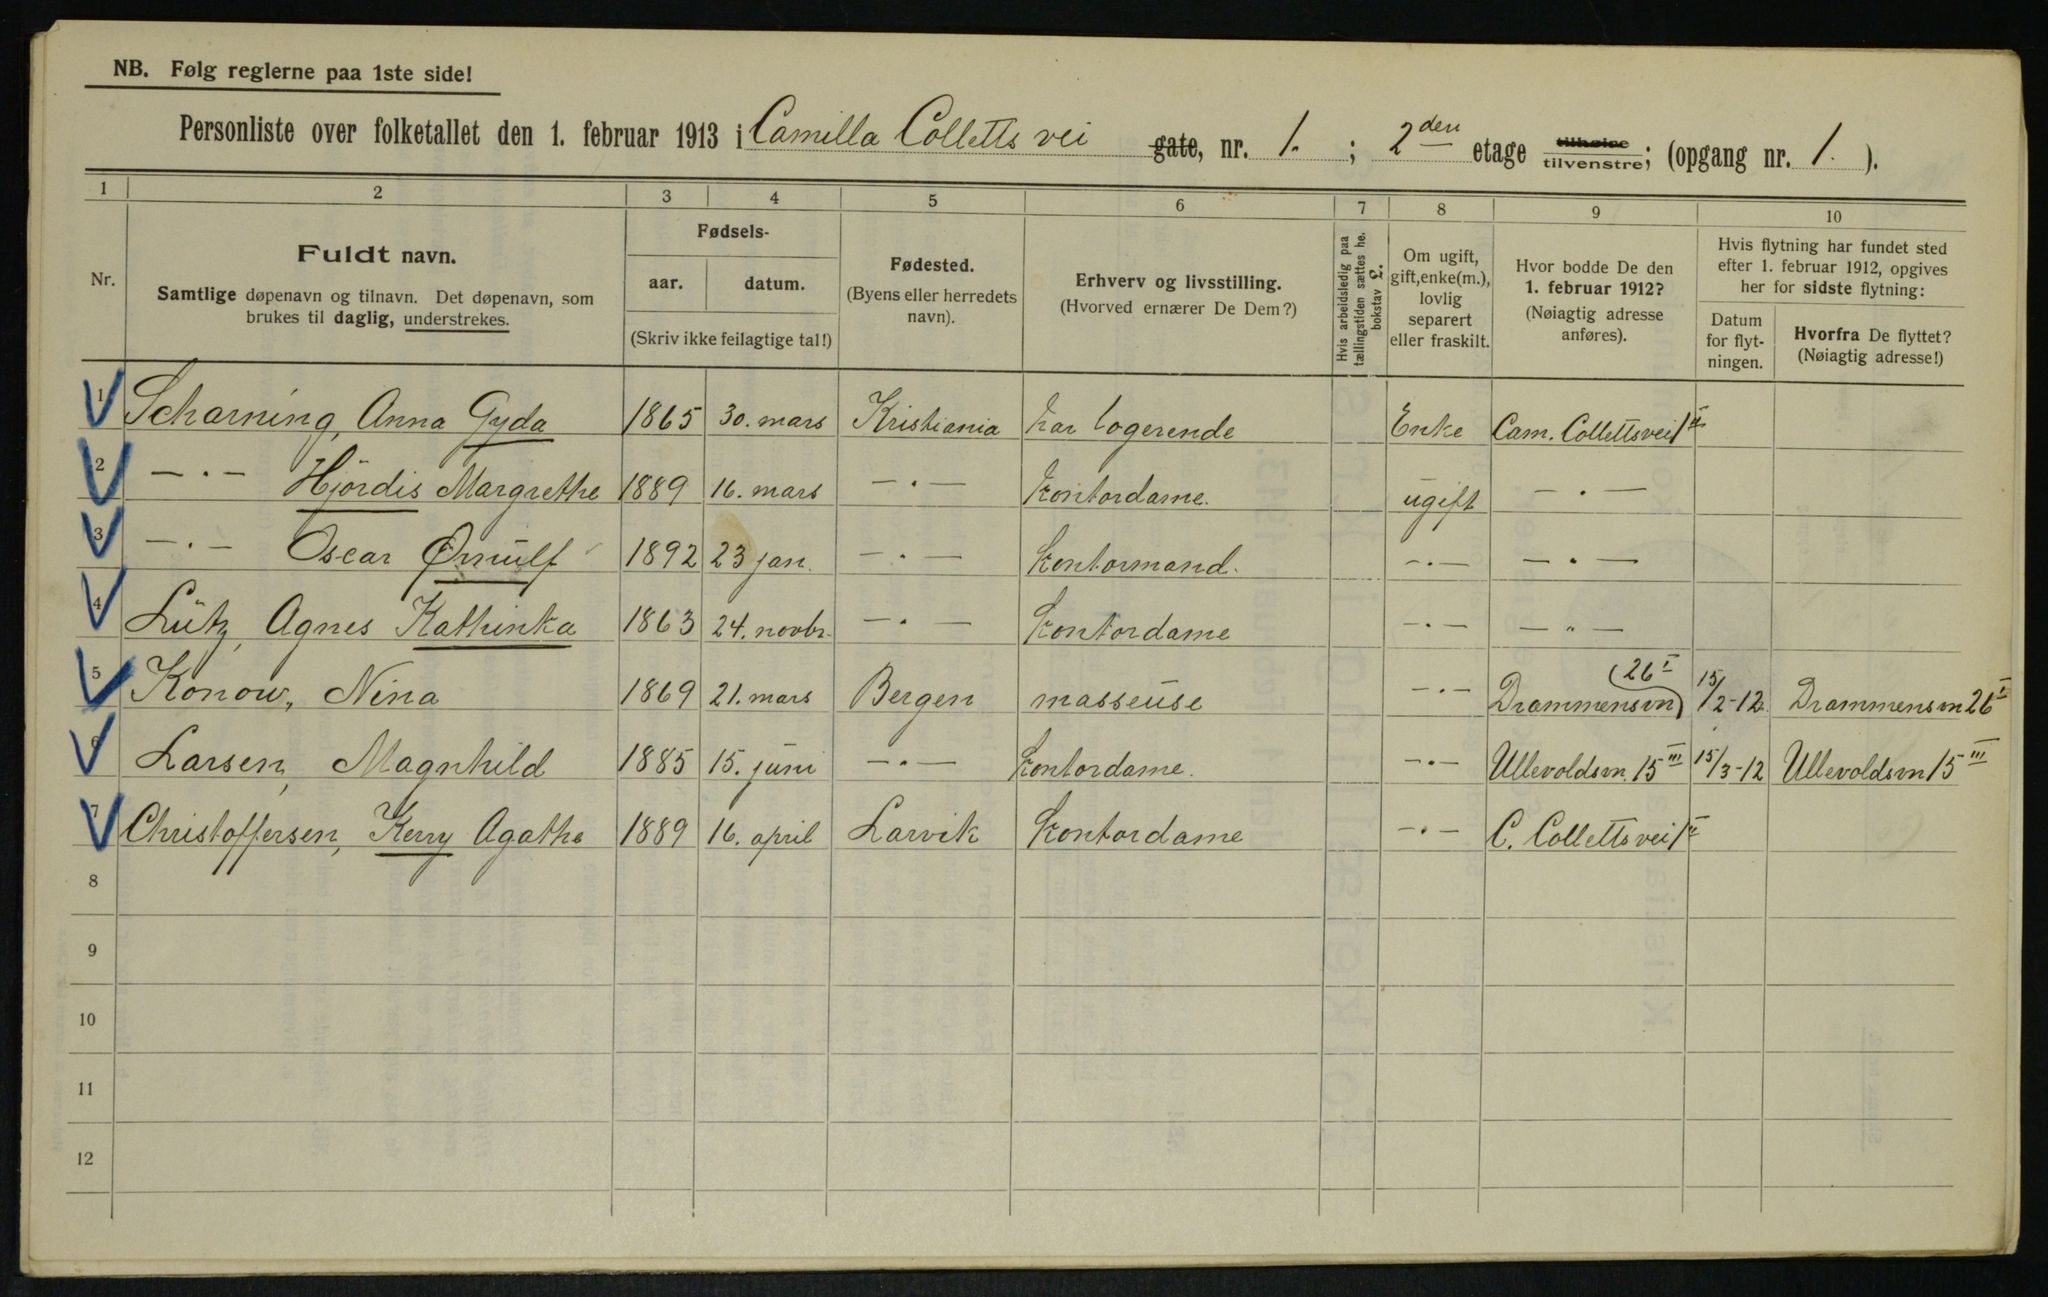 NB. Følg reglerne paa 1ste side!
Personliste over folketallet den 1. februar 1913 i Camilla Colletts vei gate, nr. 1. ; 2den etage tilhøire tilvenstre; (opgang nr. 1. ).
1 2 3 4 5 6 7 8 9 10
Nr.
Fuldt navn.
Samtlige døpenavn og tilnavn. Det døpenavn, som
brukes til daglig, understrekes.
Fødsels-
aar. datum.
(Skriv ikke feilagtige tal!)
Fødested.
(Byens eller herredets
navn).
Erhverv og livsstilling.
(Hvorved ernærer De Dem?)
Hvis arbeidsledig paa
tællingstiden sættes he.
bokstav L.
Om ugift,
gift, enke(m.),
lovlig
separert
eller fraskilt.
Hvor bodde De den
1. februar 1912?
(Nøiagtig adresse
anføres).
Hvis flytning har fundet sted
efter 1. februar 1912, opgives
her for sidste flytning:
Datum
for flyt-
ningen.
Hvorfra De flyttet?
(Nøiagtig adresse!)
1 Scharning, Anna Gyda 1865 30. mars Kristiania har logerende Enke Cam. Collettsvei 1 II
2 —·— Hjördis Margrethe 1889 16. mars —·— Kontordame. ugift —·—
3 —·— Oscar Ørnulf 1892 23 jan. —·— Kontormand. —·— —·—
4 Lütz, Agnes Kathinka 1863 24. novbr. —·— Kontordame —·— —"—
5 Konow, Nina 1869 21. mars Bergen masseuse —·— Drammensvn 26 I 15/2-12. Drammensvn 26 I
6 Larsen, Magnhild 1885 15. juni —·— Kontordame. —·— Ullevoldsvn. 15 III 15/3-12 Ullevoldsvn 15 III
7 Christoffersen, Kerry Agathe 1889 16. april Larvik Kontordame —·— C. Collettsvei 1 II
8
9
10
11
12